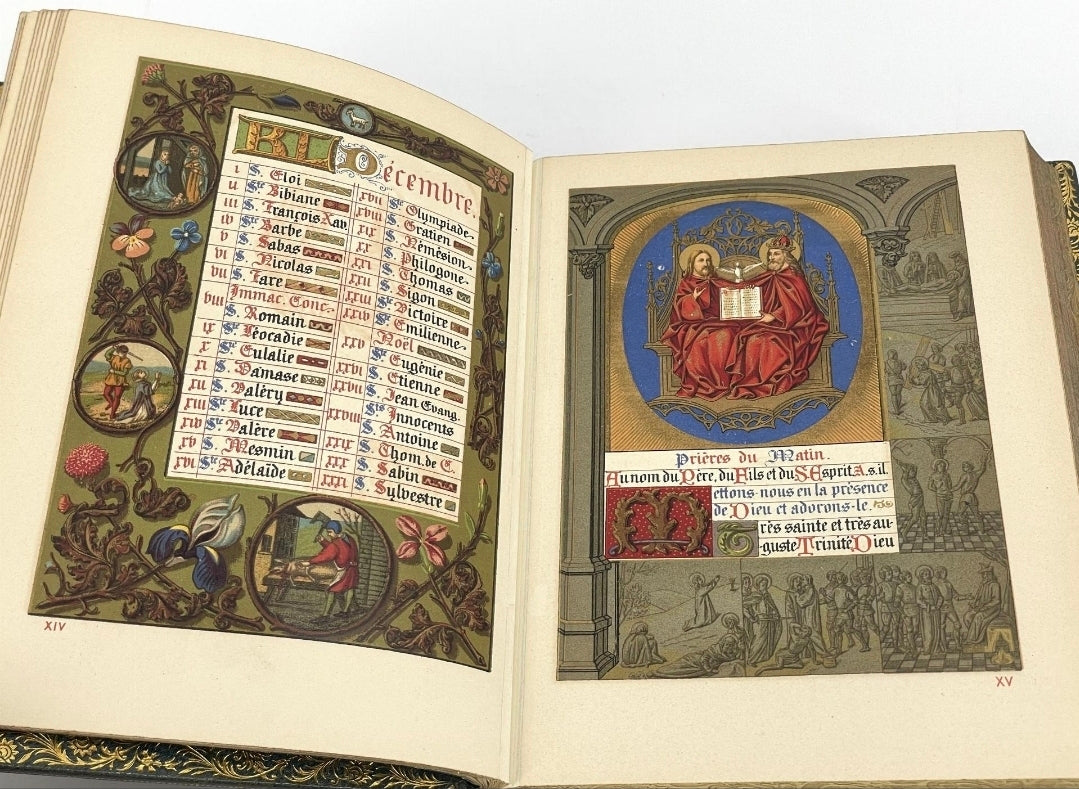 KL Décembre.
i S. Eloi
ii Ste Bibiane
iii S. François Xav.
iv Ste Barbe
v S. Sabas
vi S. Nicolas
vii Ste Fare
viii Immac. Conc.
S. Romain
ix Ste Léocadie
x Ste Eulalie
xi S. Damase
xii S. Valéry
xiii Ste Luce
xiv Ste Valère
xv S. Mesmin
xvi Ste Adélaïde
xvii Ste Olympiade
xviii S. Gratien
xix S. Némésion
xx S. Philogone
xxi S. Thomas
xxii S. Sigon
xxiii Ste Victoire
xxiv Ste Emilienne
xxv Noël
Ste Eugénie
xxvi S. Etienne
xxvii S. Jean Evang.
xxviii Sts Innocents
S. Antoine
xxix S. Thom. de C.
xxx S. Sabin
xxxi S. Sylvestre
XIV
Prières du Matin.
Au nom du Père, du Fils et du S. Esprit A.s.il.
Mettons-nous en la présence
de Dieu et adorons-le.
Très sainte et très au-
guste Trinité Dieu
XV